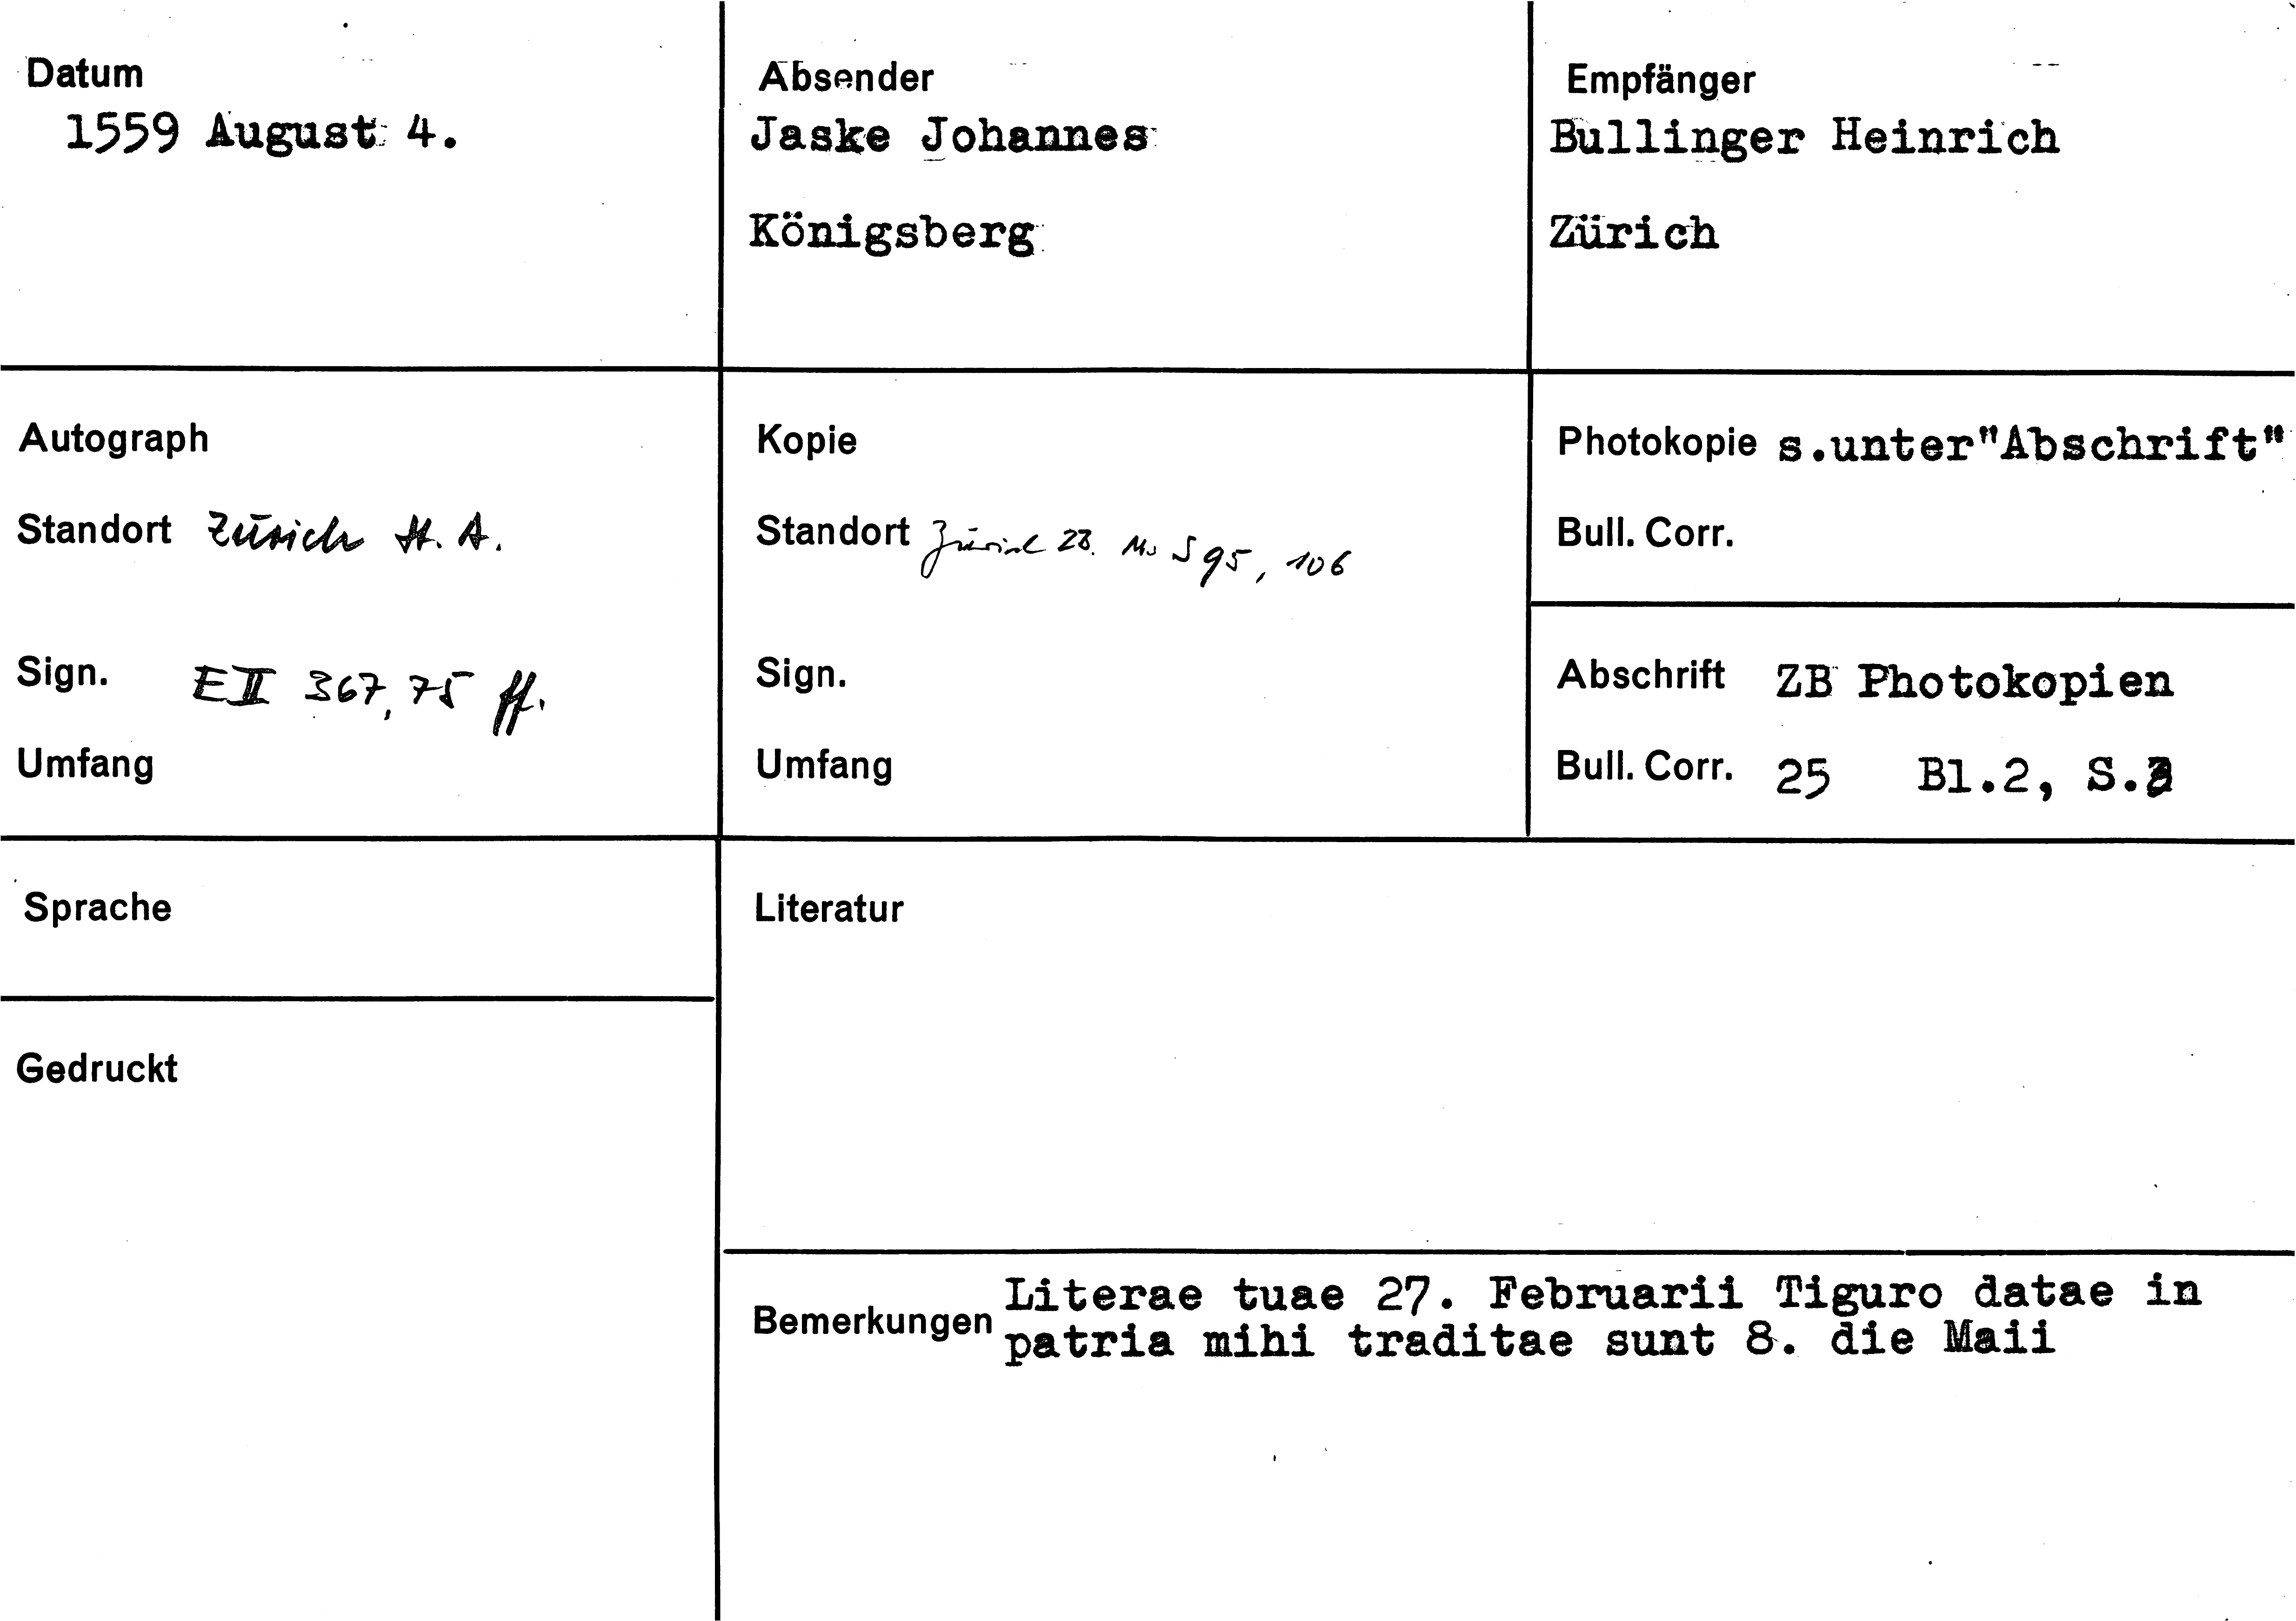 Datum
1559 August 4.
Absender
Jaske Johannes
Königsberg
Empfänger
Bullinger Heinrich
Zürich
Autograph
Standort Zürich St. A.
Sign. E II 367, 75 ff.
Umfang
Kopie
Standort Zürich ZB. Ms S 95, 106
Sign.
Umfang
Photokopie s.unter"Abschrift"
Bull. Corr.
Abschrift ZB Photokopien
Bull. Corr. 25 Bl.2, S.
Sprache
Gedruckt
Literatur
Bemerkungen Literae tuae 27. Februarii Tiguro datae in
patria mihi traditae sunt 8. die Maii